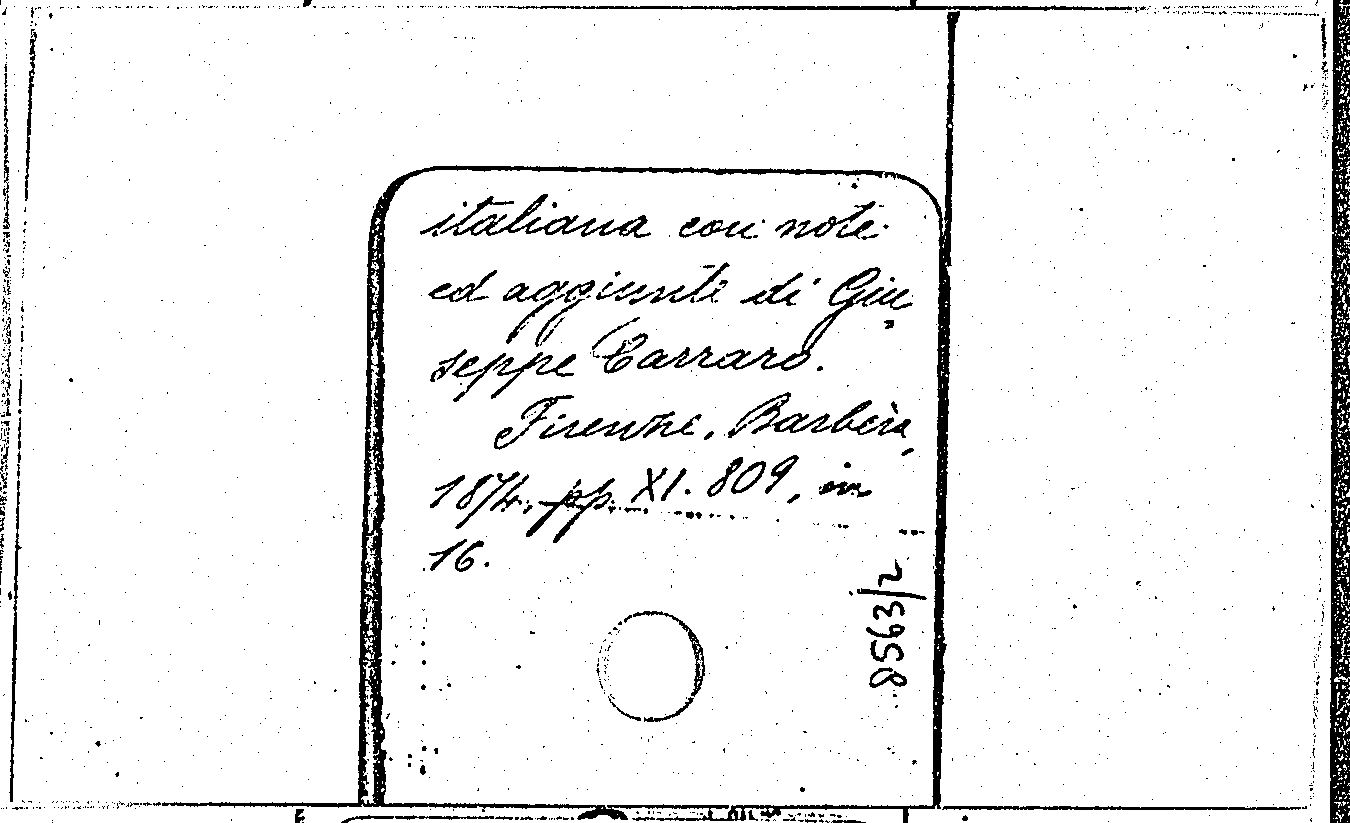 italiana con note
ed aggiunte di Giu
seppe Carraro.
Firenze, Barbèra,
1874, pp. XI. 809, in
16.
8563/2